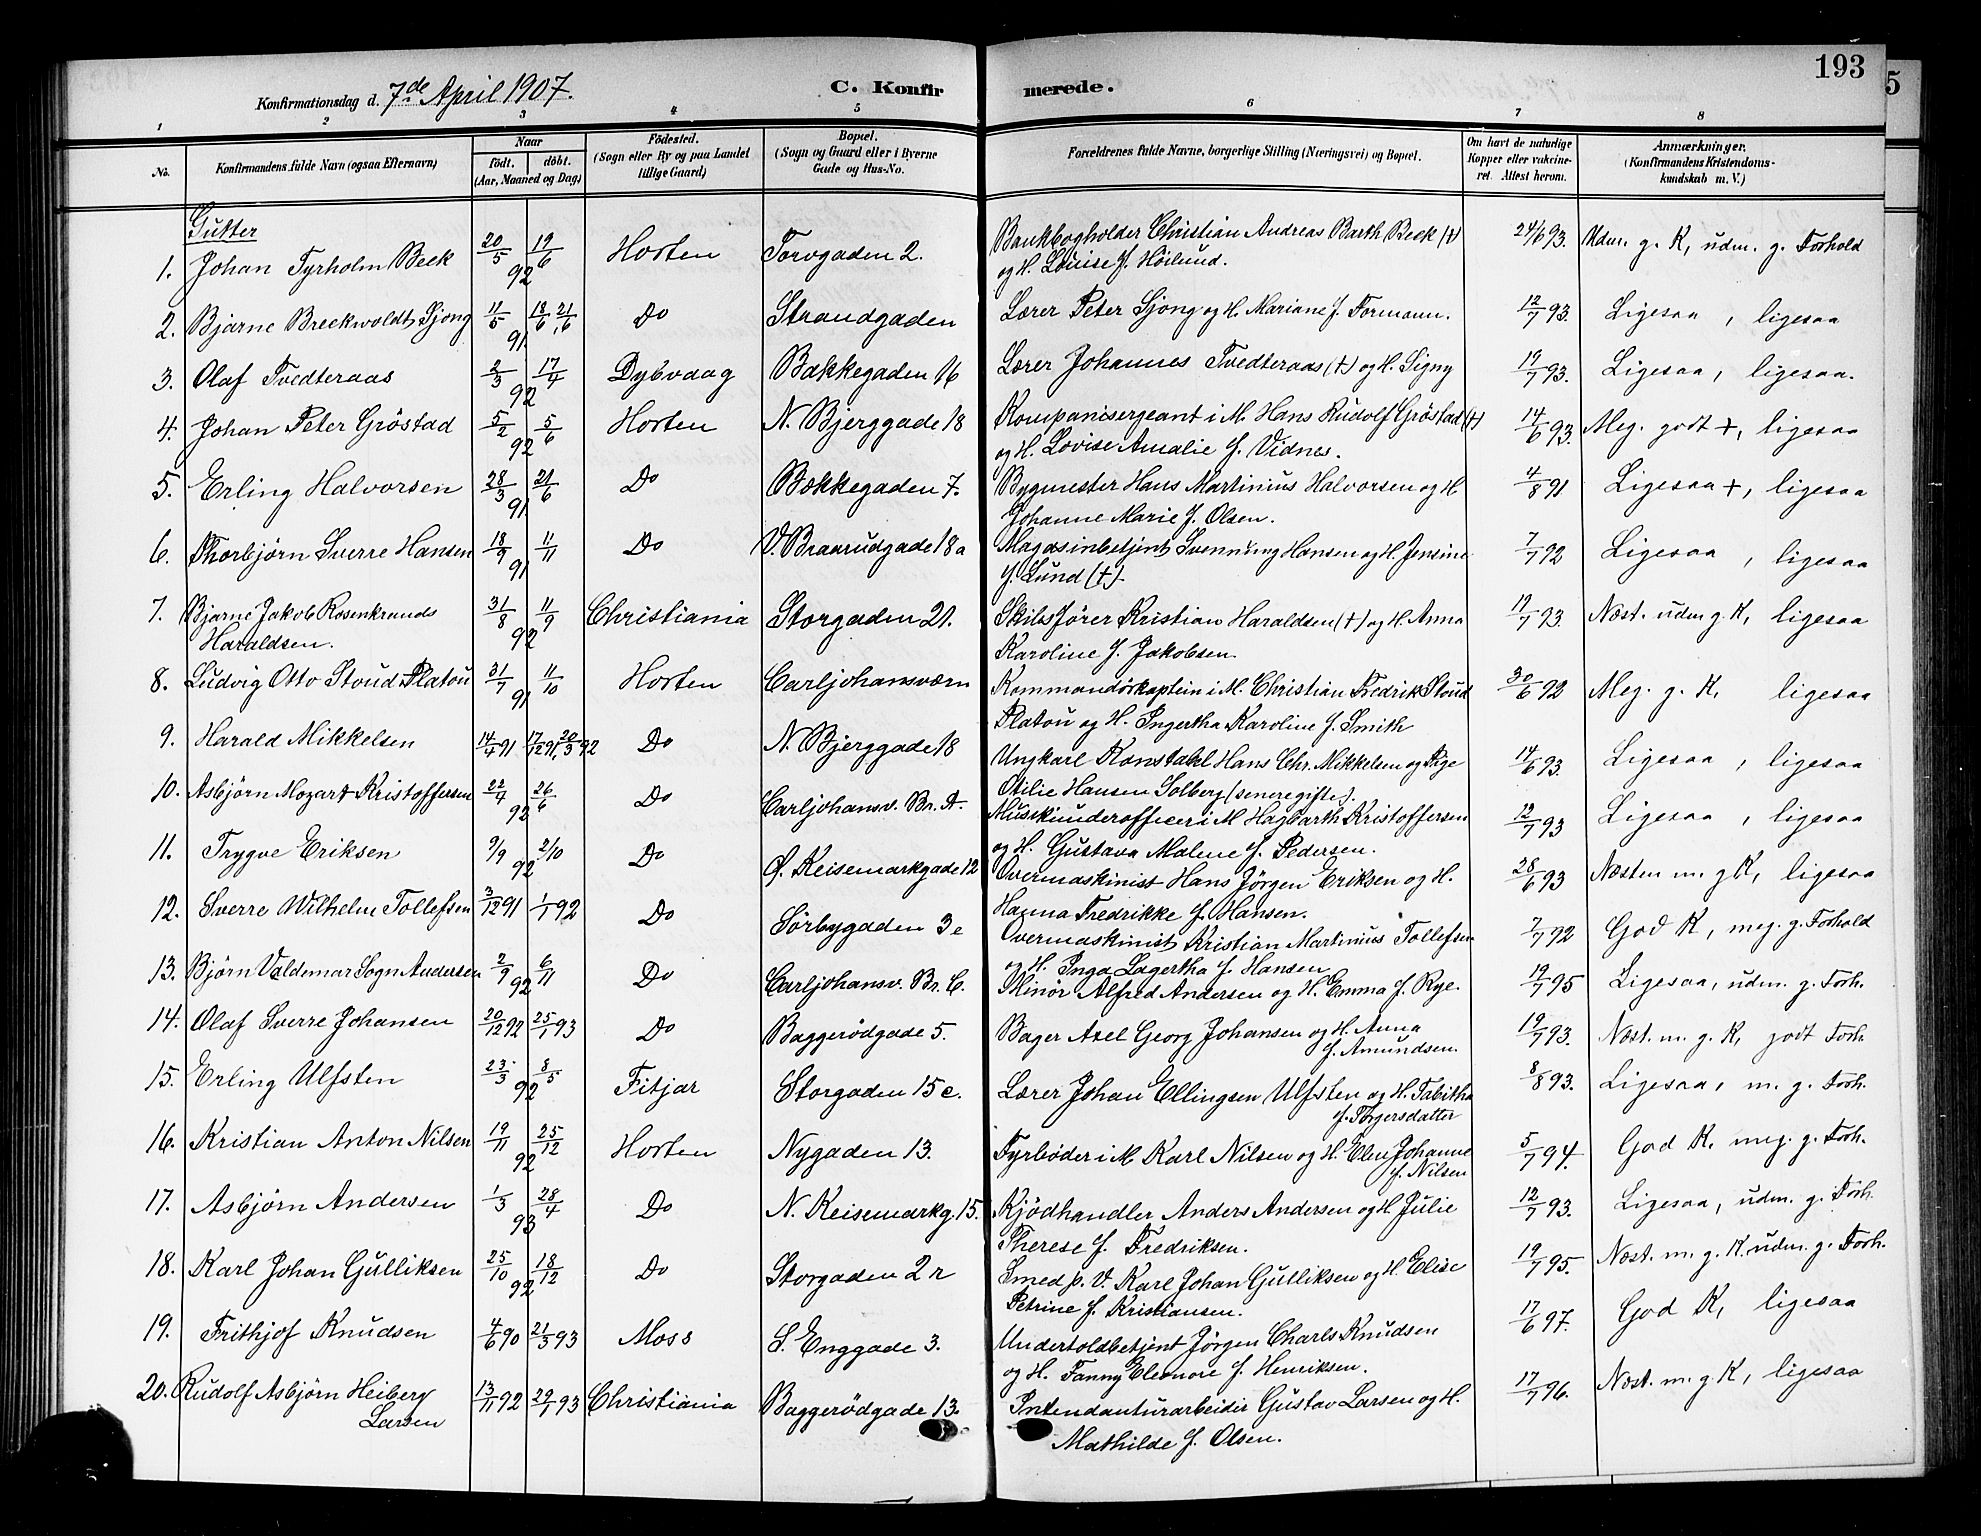 193
5
Konfirmationsdag d. 7de April 1907.
C. Konfirmerede.
1 2 3 4 5 6 7 8
No.
Konfirmandens fulde Navn (ogsaa Efternavn)
Naar
födt. döbt.
(Aar, Maaned og Dag)
Födested.
(Sogn eller By og paa Landet
tillige Gaard)
Bopæl.
(Sogn og Gaard eller i Byerne
Gade og Hus-No.
Forældrenes fulde Navne, borgerlige Stilling (Næringsvei) og Bopæl.
Om havt de naturlige
Kopper eller vakcine-
ret. Attest herom.
Anmærkninger.
(Konfirmandens Kristendoms-
kundskab m. V.)
Gutter
1. Johan Tyrholm Beck 20/5 92 19/6 Horten Torvgaden 2. Bankbogholder Christian Andreas Barth Beck (†) 24/6 93. Udm. g. K, udm. g. Forhold
og H. Louise f. Höilund.
2. Bjarne Breckwoldt Sjong 11/5 91 18/6, 21/6 Do Strandgaden Lærer Peter Sjong og H. Mariane f. Formann. 12/7 93. Ligesaa, ligesaa
3. Olaf Tvedteraas 2/3 92 17/4 Dybvaag Bakkegaden 16 Lærer Johannes Tvedteraas (†) og H. Signy 19/7 93. Ligesaa, ligesaa.
4. Johan Peter Gröstad 5/2 92 5/6 Horten N. Bjerggade 18 Kompanisergeant i M. Hans Rudolf Gröstad (†) 14/6 93. Meg. godt +, ligesaa
og H. Lovise Amalie f. Vidnes.
5. Erling Halvorsen 28/3 91 21/6 Do Bækkegaden 7. Bygmester Hans Martinius Halvorsen og H 4/8 91 Ligesaa +, ligesaa
Johanne Marie f. Olsen.
6. Thorbjörn Sverre Hansen 18/9 91 11/11 Do V. Braarudgade 18a Magasinbetjent Svennung Hansen og H. Jensine 7/7 92 Ligesaa, ligesaa
f. Lund (†)
7. Bjarne Jakob Rosenkrands 31/8 92 11/9 Christiania Storgaden 21. Skibsförer Kristian Haraldsen (†) og H. Anna 19/7 93. Næst. udm g. K, ligesaa
Haraldsen. Karoline f. Jakobsen.
8. Ludvig Otto Stoud Platou 31/7 91 11/10 Horten Carljohansværn Kommandörkaptein i M. Christian Fredrik Stoud 30/6 92 Meg. g. K, ligesaa
Platou og H. Ingertha Karoline f. Smith
9. Harald Mikkelsen 14/4 91 17/12 91, 20/3 92 Do N. Bjerggade 18 Ungkarl Konstabel Hans Chr. Mikkelsen og Pige 14/6 93. Ligesaa, ligesaa
Otilie Hansen Solberg (senere gifte).
10. Asbjörn Mozart Kristoffersen 22/4 92 26/6 Do Carljohansv. Br. A. Musikunderofficer i M Hagbarth Kristoffersen 12/7 93 Ligesaa, ligesaa
og H. Gustava Malene f. Pedersen.
11. Trygve Eriksen 9/9 92 2/10 Do Ø. Keisemarkgade 12 Overmaskinist Hans Jörgen Eriksen og H. 28/6 93 Næsten m. g K, ligesaa
Hanna Fredrikke f. Hansen.
12. Sverre Wilhelm Tollefsen 3/12 91 1/1 92 Do Sörbygaden 3e Overmaskinist Kristian Martinius Tollefsen 7/7 92 God K, meg. g. Forhold
og H. Inga Lagertha f. Hansen
13. Björn Valdemar Sogn Andersen 2/9 92 6/11 Do Carljohansv. Br. C. Minör Alfred Andersen og H. Emma f. Rye. 19/7 95 Ligesaa, udm. g. Forh.
14. Olaf Sverre Johansen 20/12 92 25/1 93 Do Baggerödgade 5. Bager Axel Georg Johansen og H. Anna 19/7 93. Næst. m. g. K, godt Forh.
f. Amundsen.
15. Erling Ulfsten 23/3 92 8/5 Fitjar Storgaden 15c. Lærer Johan Ellingsen Ulfsten og H. Tabitha 8/8 93. Ligesaa, m. g. Forh.
f. Torgersdatter
16. Kristian Anton Nilsen 19/11 92 25/12 Horten Nygaden 13. Fyrböder i M Karl Nilsen og H. Elen Johanne 5/7 94. God K, meg. g. Forh.
f. Nilsen
17. Asbjörn Andersen 1/3 93 28/4 Do N. Keisemarkg. 15. Kjödhandler Anders Andersen og H Julie 12/7 93. Ligesaa, udm. g. Forh.
Therese f. Fredriksen.
18. Karl Johan Gulliksen 25/10 92 18/12 Do Storgaden 2r Smed p. V. Karl Johan Gulliksen og H Elise 19/7 95. Næst. m. g. K. udm. g. Forh.
Petrine f. Kristiansen.
19. Frithjof Knudsen 4/6 90 21/3 93 Moss S. Enggade 3. Undertoldbetjent Jörgen Charls Knudsen 17/6 97. God K, ligesaa
og H. Fanny Eleonore f. Henriksen.
20. Rudolf Asbjörn Heiberg 13/11 92 29/1 93 Christiania Baggerödgade 13. Intendanturarbeider Gustav Larsen og H. 17/7 96. Næst. m. g. K, ligesaa
Larsen Mathilde f. Olsen.